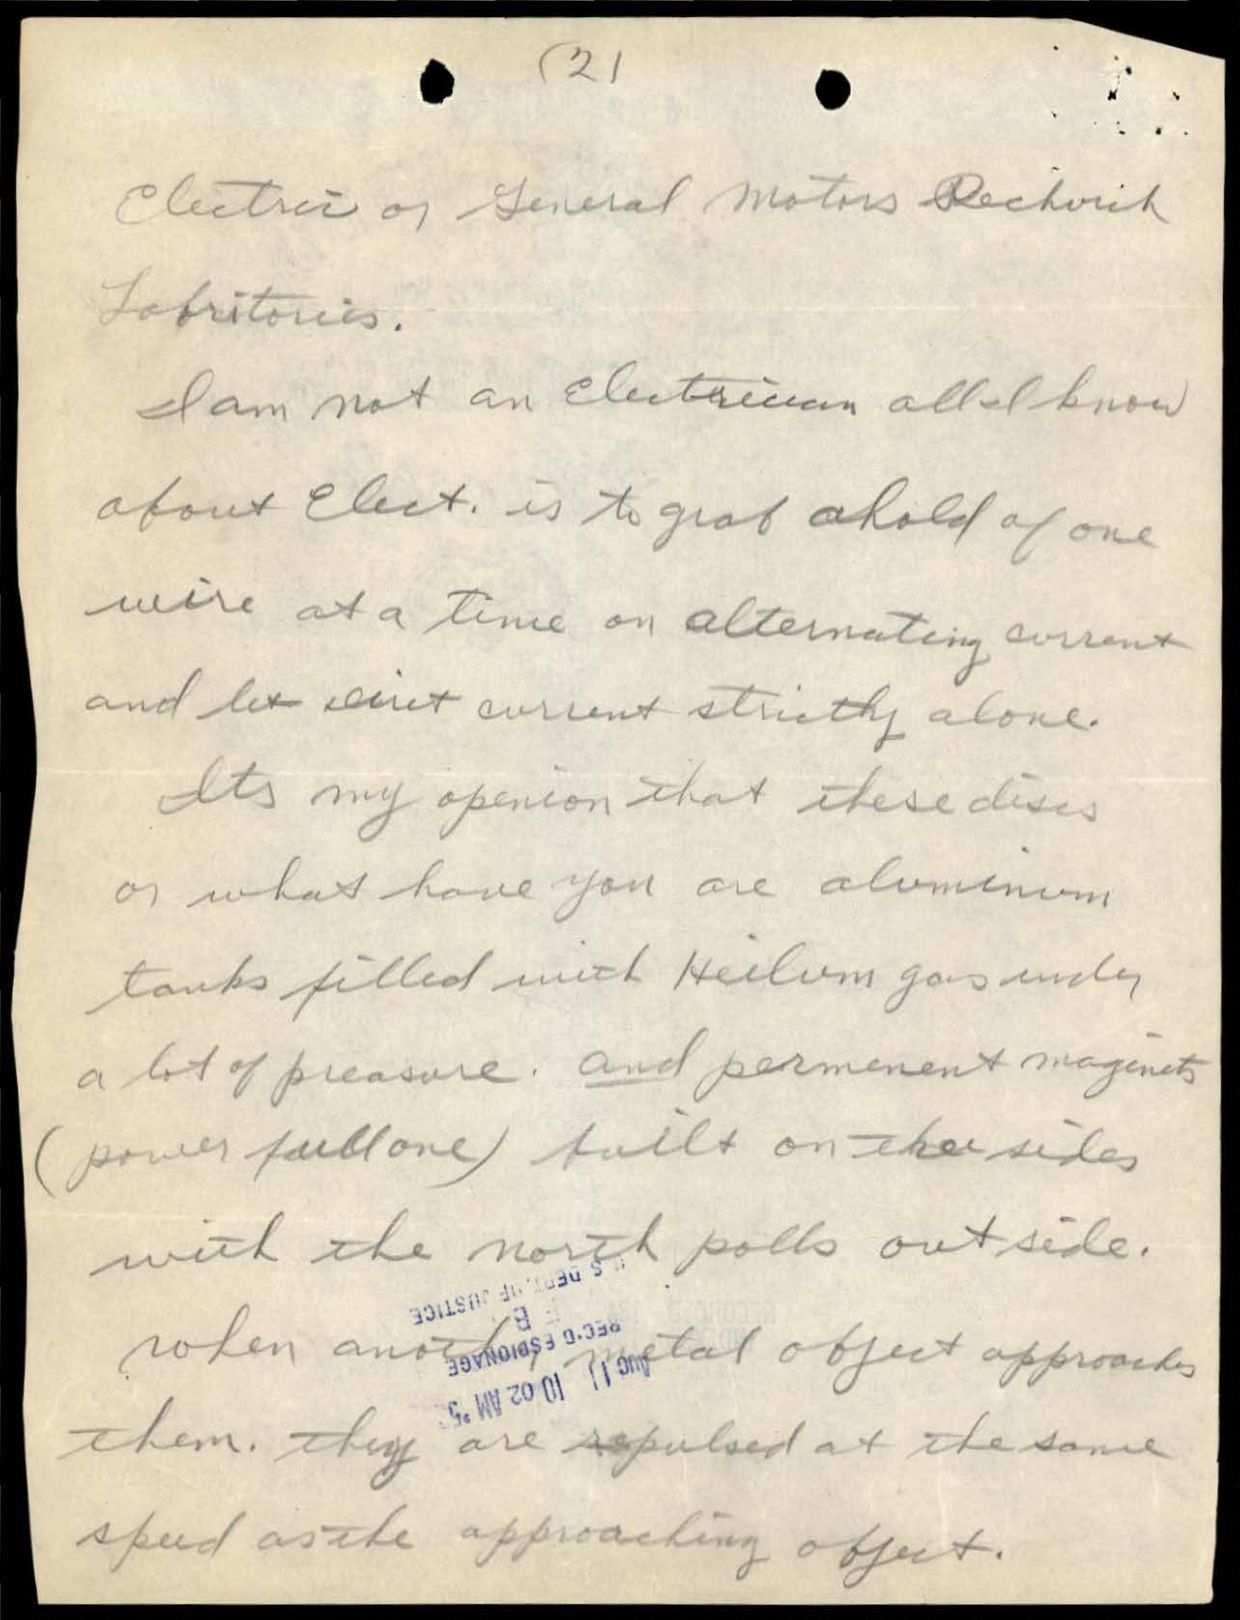 (2)
Electric or General Motors
Labritories.
I am not an Electrician all I know
about Elect. is to grab ahold of one
wire at a time on alternating current
and let current strictly alone.
Its my openion that these discs
or what have you are aluminum
tanks filled with Heilum gas under
a lot of preasure. and permenent maginets
(power full one) built on the sides
with the north polls out side.
U.S. DEPT. OF JUSTICE
REC'D ESPIONAGE
AUG 11 10 02 AM
when another metal object approaches
them. they are repulsed at the same
speed as the approaching object.